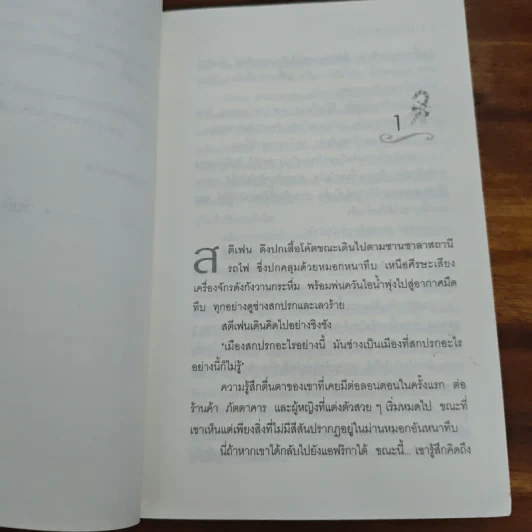 1
สตีเฟน ดึงปกเสื้อโค้ตขณะเดินไปตามชานชาลาสถานี
รถไฟ ซึ่งปกคลุมด้วยหมอกหนาทึบ เหนือศีรษะเสียง
เครื่องจักรดังกังวานกระหึ่ม พร้อมพ่นควันไอน้ำพุ่งไปสู่อากาศมืด
ทึบ ทุกอย่างดูช่างสกปรกและเลวร้าย
สตีเฟนเดินคิดไปอย่างชิงชัง
"เมืองสกปรกอะไรอย่างนี้ มันช่างเป็นเมืองที่สกปรกอะไร
อย่างนี้ก็ไม่รู้"
ความรู้สึกตื่นตาของเขาที่เคยมีต่อลอนดอนในครั้งแรก ต่อ
ร้านค้า ภัตตาคาร และผู้หญิงที่แต่งตัวสวย ๆ เริ่มหมดไป ขณะที่
เขาเห็นแต่เพียงสิ่งที่ไม่มีสีสันปรากฏอยู่ในม่านหมอกอันหนาทึบ
นี่ถ้าหากเขาได้กลับไปยังแอฟริกาใต้ ขณะนี้... เขารู้สึกคิดถึง